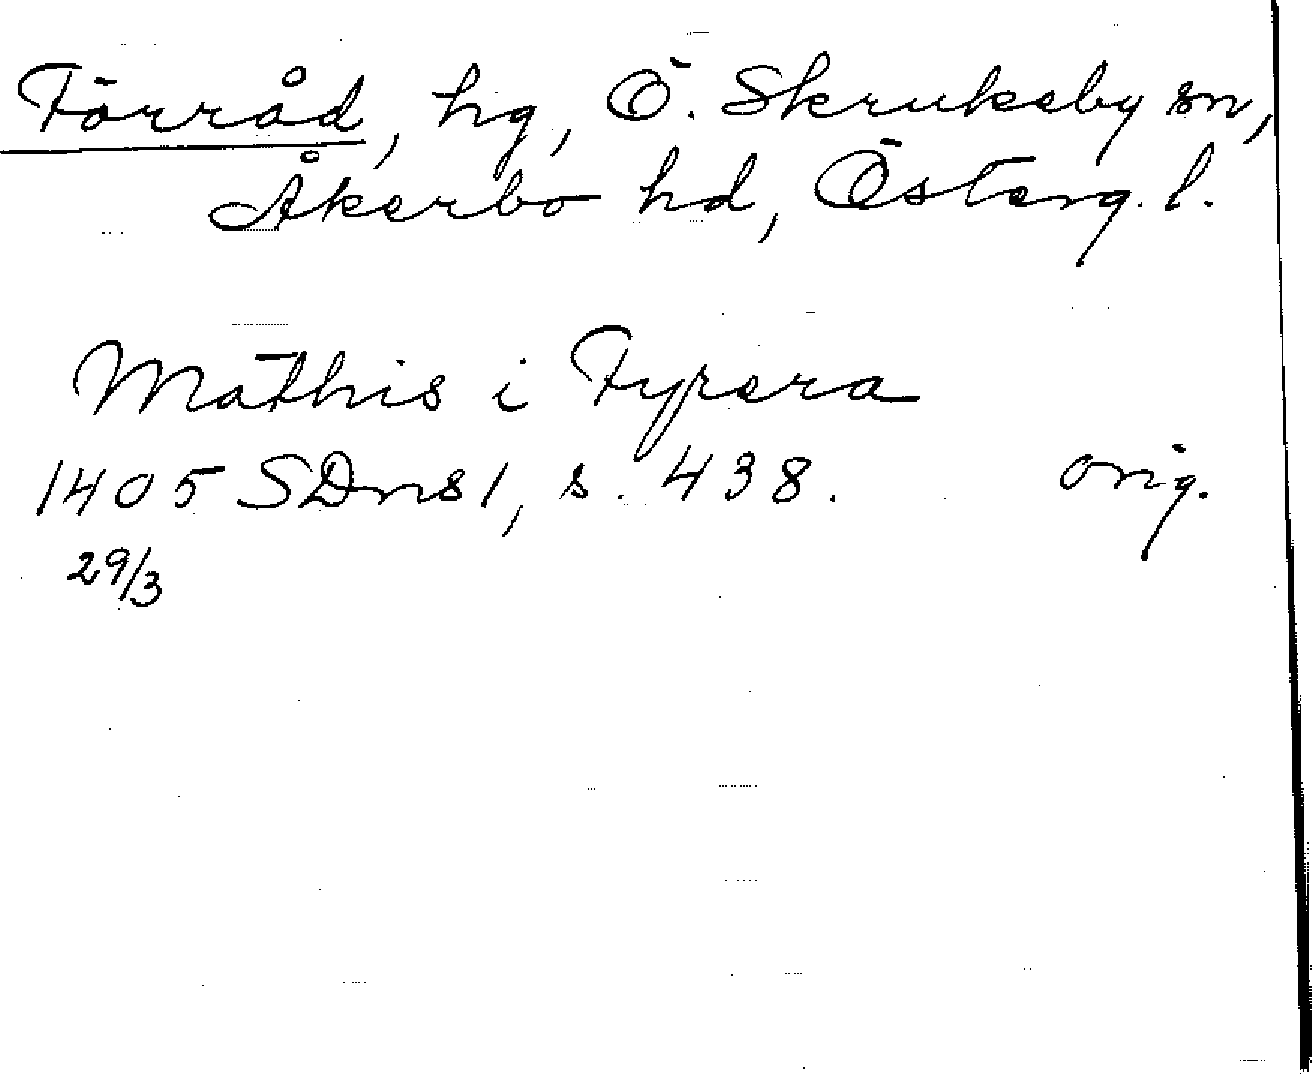 Förråd, hg, Ö. Skrukeby sn,
Åkerbo hd, Österg. l.
Mathis i Fyrera
1405 SDns 1, s. 438. orig.
29/3